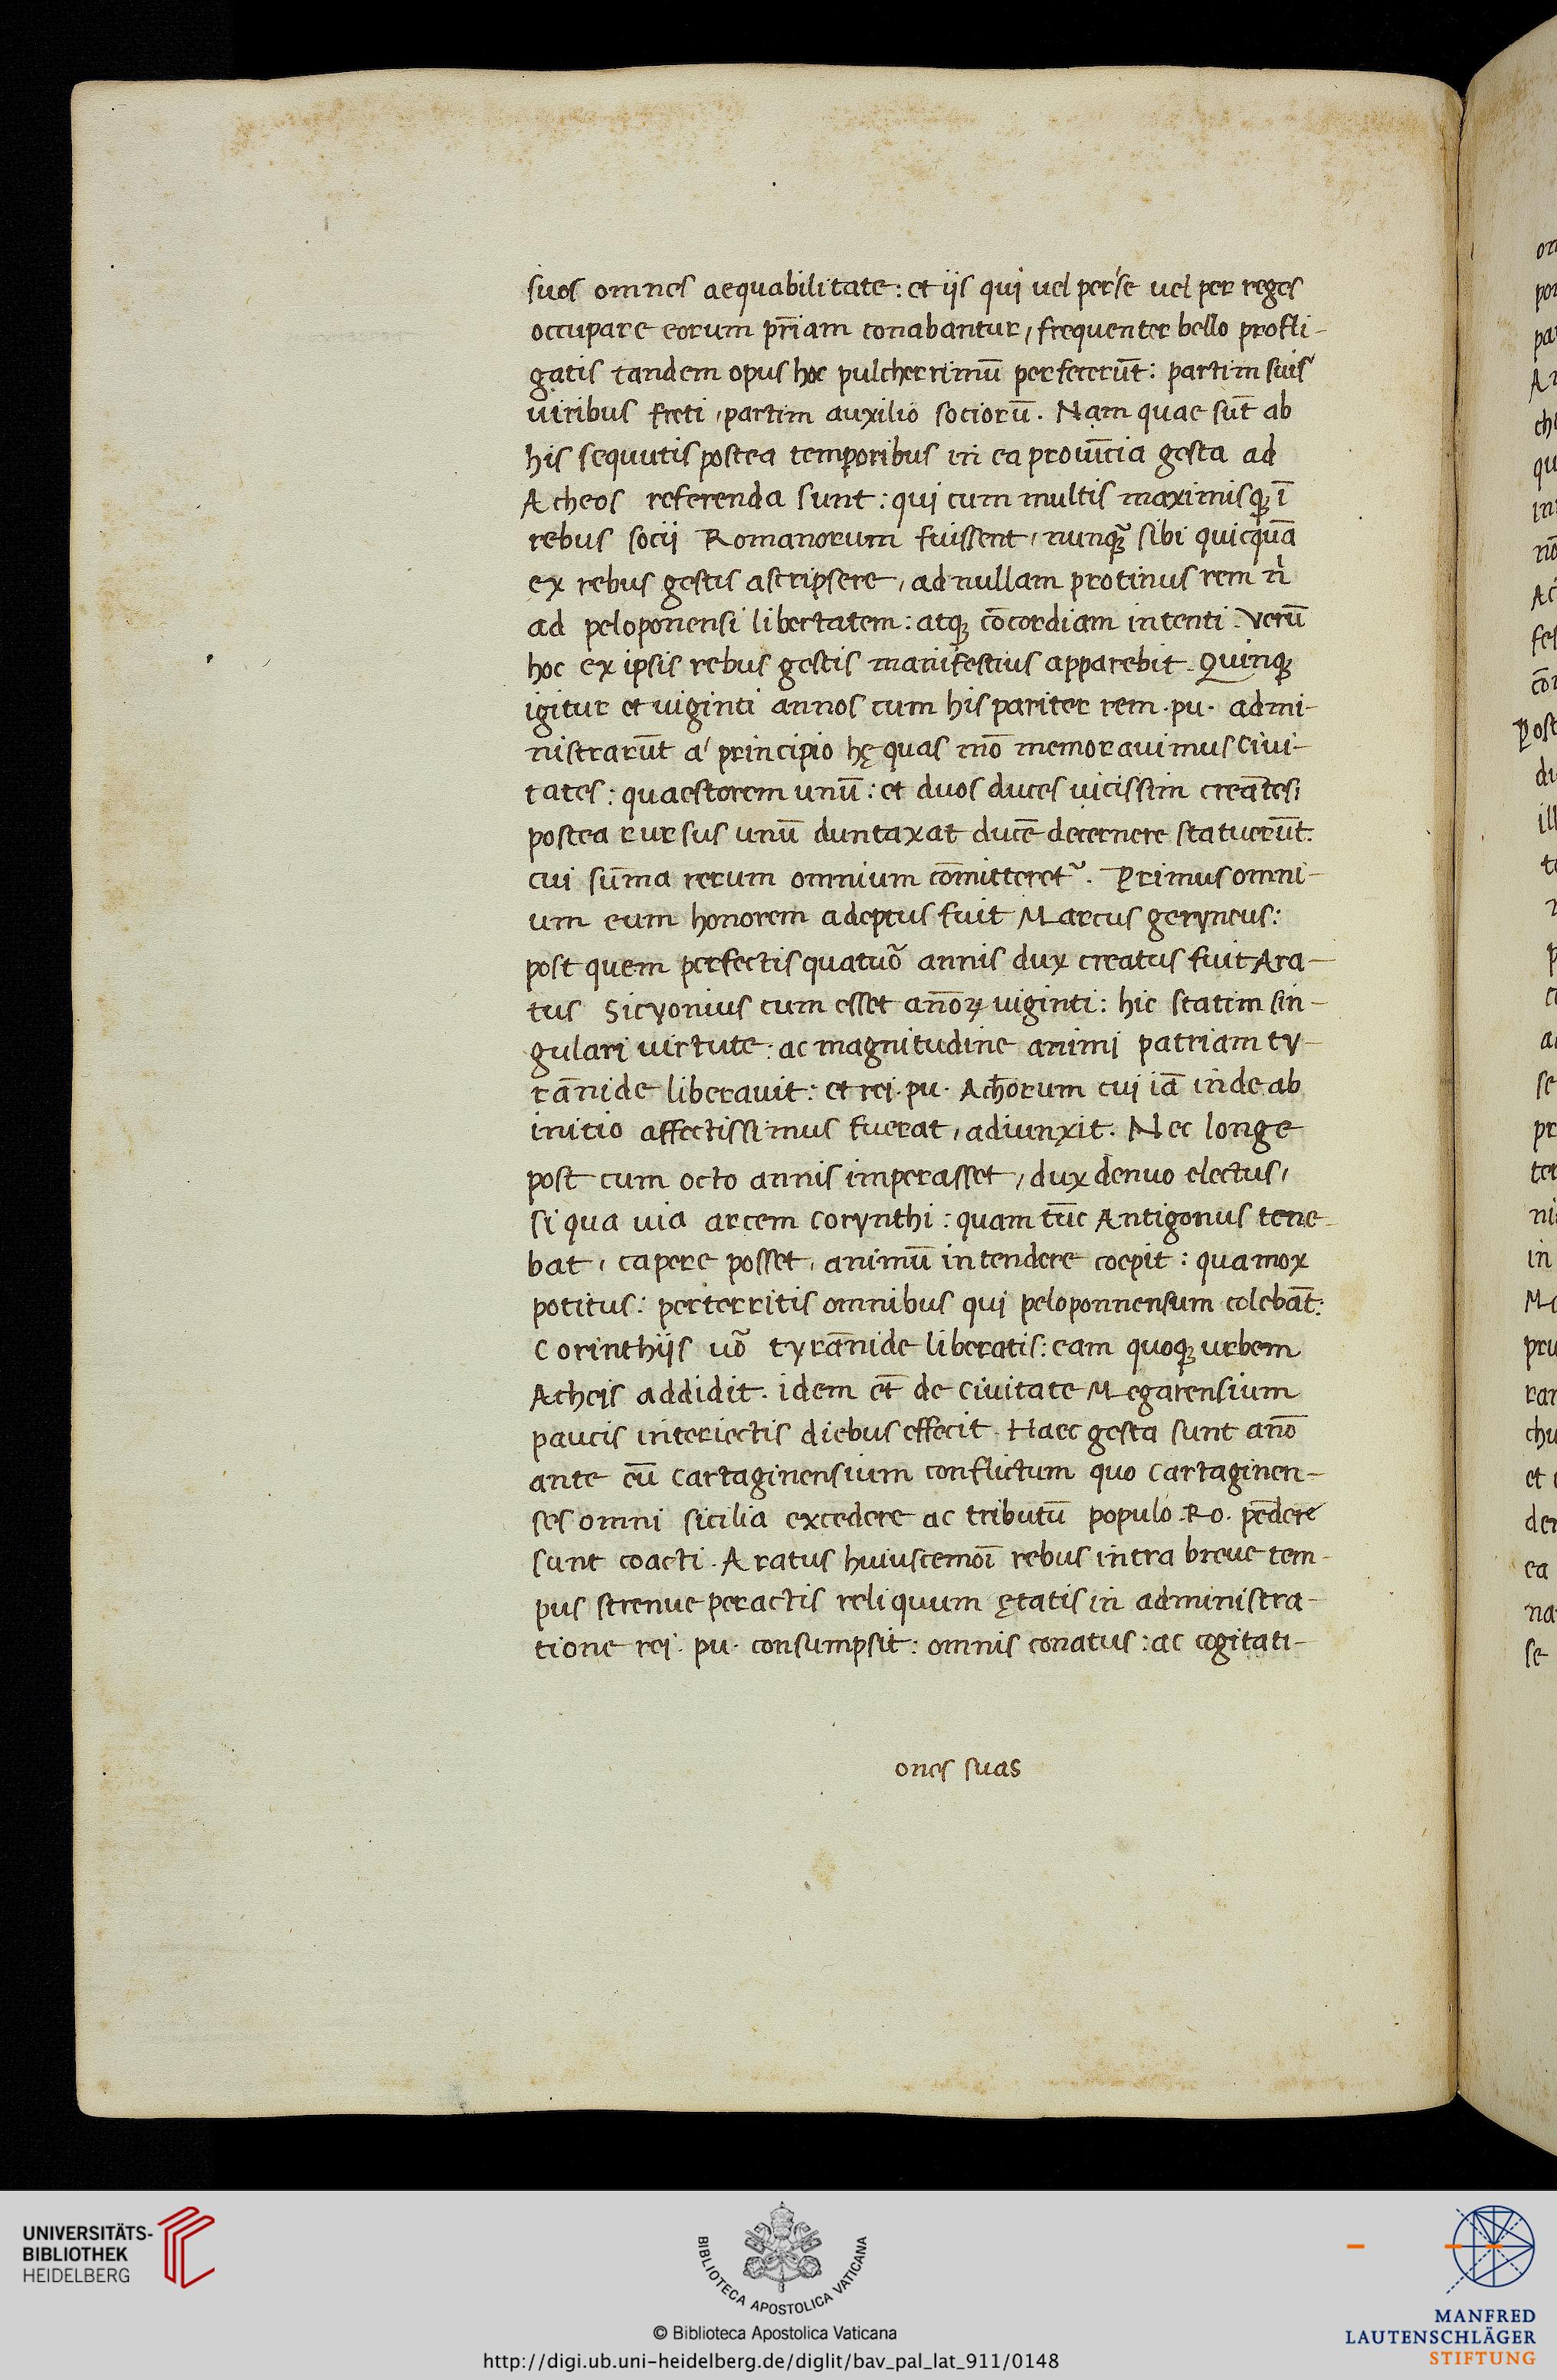 suos omnes aequabilitate: et iis qui uel per se uel per reges
occupare eorum pr̄iam conabantur, frequenter bello profli-
gatis tandem opus hoc pulcherrimū perfecerūt: partim suis
uiribus freti, partim auxilio sociorū. Nam quae sūt ab
his sequutis postea temporibus in ea prouīcia gesta ad
Acheos referenda sunt: qui cum multis maximisqꝫ ī
rebus socii Romanorum fuissent, nunqᷓ sibi quicquā
ex rebus gestis ascripsere, ad nullam protinus rem n̄
ad peloponensi libertatem: atqꝫ cōcordiam intenti. Verū
hoc ex ipsis rebus gestis manifestius apparebit. Quinqꝫ
igitur et uiginti annos cum his pariter rem .pu. admi-
nistrarūt a' principio hę quas mō memorauimus ciui-
tates: quaestorem unū: et duos duces uicissim creātes,
postea rursus unū duntaxat ducē decernere statuerūt:
cui sūma rerum omnium cōmitteretᷣ. Primus omni-
um eum honorem adeptus fuit Marcus geryneus:
post quem perfectis quatuō annis dux creatus fuit Ara-
tus Sicyonius cum esset anōꝝ uiginti: hic statim sin-
gulari uirtute: ac magnitudine animi patriam ty-
rānide liberauit: et rei .pu. Achorum cui iā inde ab
initio affectissimus fuerat, adiunxit. Nec longe
post cum octo annis imperasset, dux denuo electus,
si qua uia arcem Corynthi: quam tūc Antigonus tene-
bat, capere posset, animū intendere coepit: qua mox
potitus: perterritis omnibus qui peloponnensum colebāt:
Corinthiis uō tyrānide liberatis: eam quoqꝫ urbem
Acheis addidit. idem et̄ de ciuitate Megarensium
paucis interiectis diebus effecit. Haec gesta sunt anō
ante eū Cartaginensium conflictum quo Cartaginen-
ses omni sicilia excedere ac tributū populo .Ro. pēdere
sunt coacti. Aratus huiuscemoī rebus intra breue tem-
pus strenue peractis reliquum ętatis in administra-
tione rei .pu. consumpsit: omnis conatus: ac cogitati-
ones suas
UNIVERSITÄTS-
BIBLIOTHEK
HEIDELBERG
BIBLIOTECA APOSTOLICA VATICANA
© Biblioteca Apostolica Vaticana
http://digi.ub.uni-heidelberg.de/diglit/bav_pal_lat_911/0148
MANFRED
LAUTENSCHLÄGER
STIFTUNG